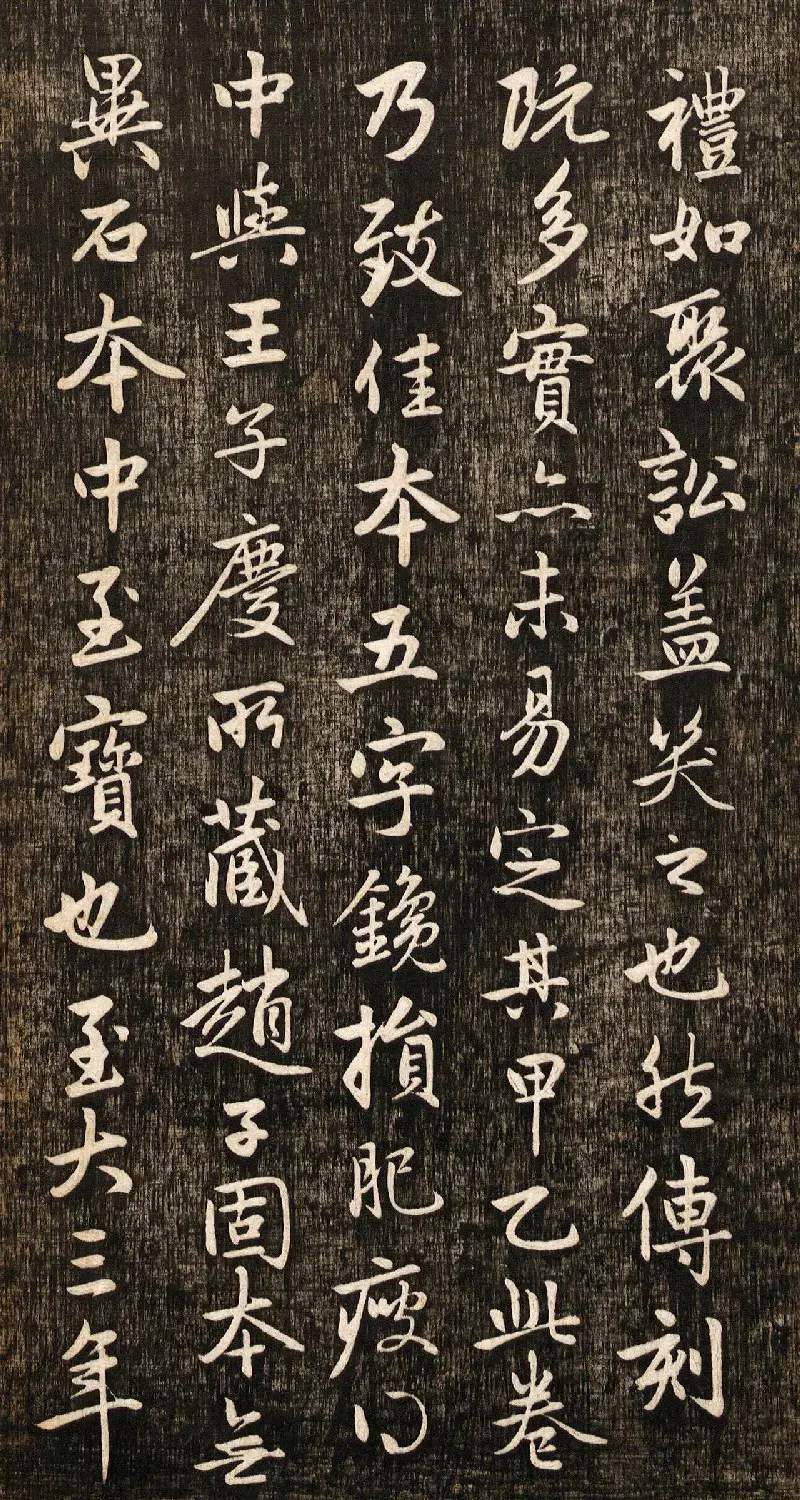 禮如聚訟盖笑之也然傳刻
既多實亦未易定其甲乙此卷
乃致佳本五字鑱損肥瘦得
中與王子慶所藏趙子固本無
異石本中至寶也至大三年